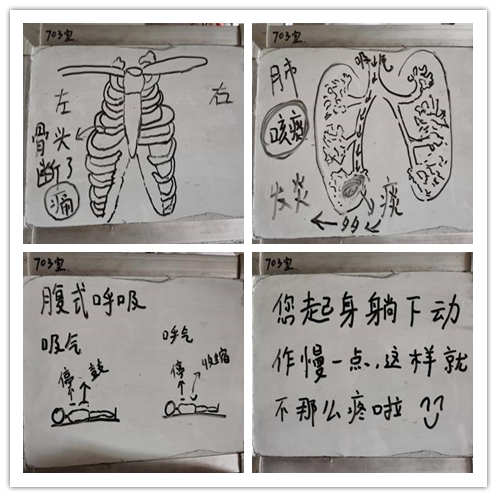 703室
左
右
骨头
断了
痛
703室
呼吸
肺
咳痰
发炎
痰
703室
腹式呼吸
吸气
呼气
停
鼓
停
收缩
703室
您起身躺下动
作慢一点,这样就
不那么疼啦